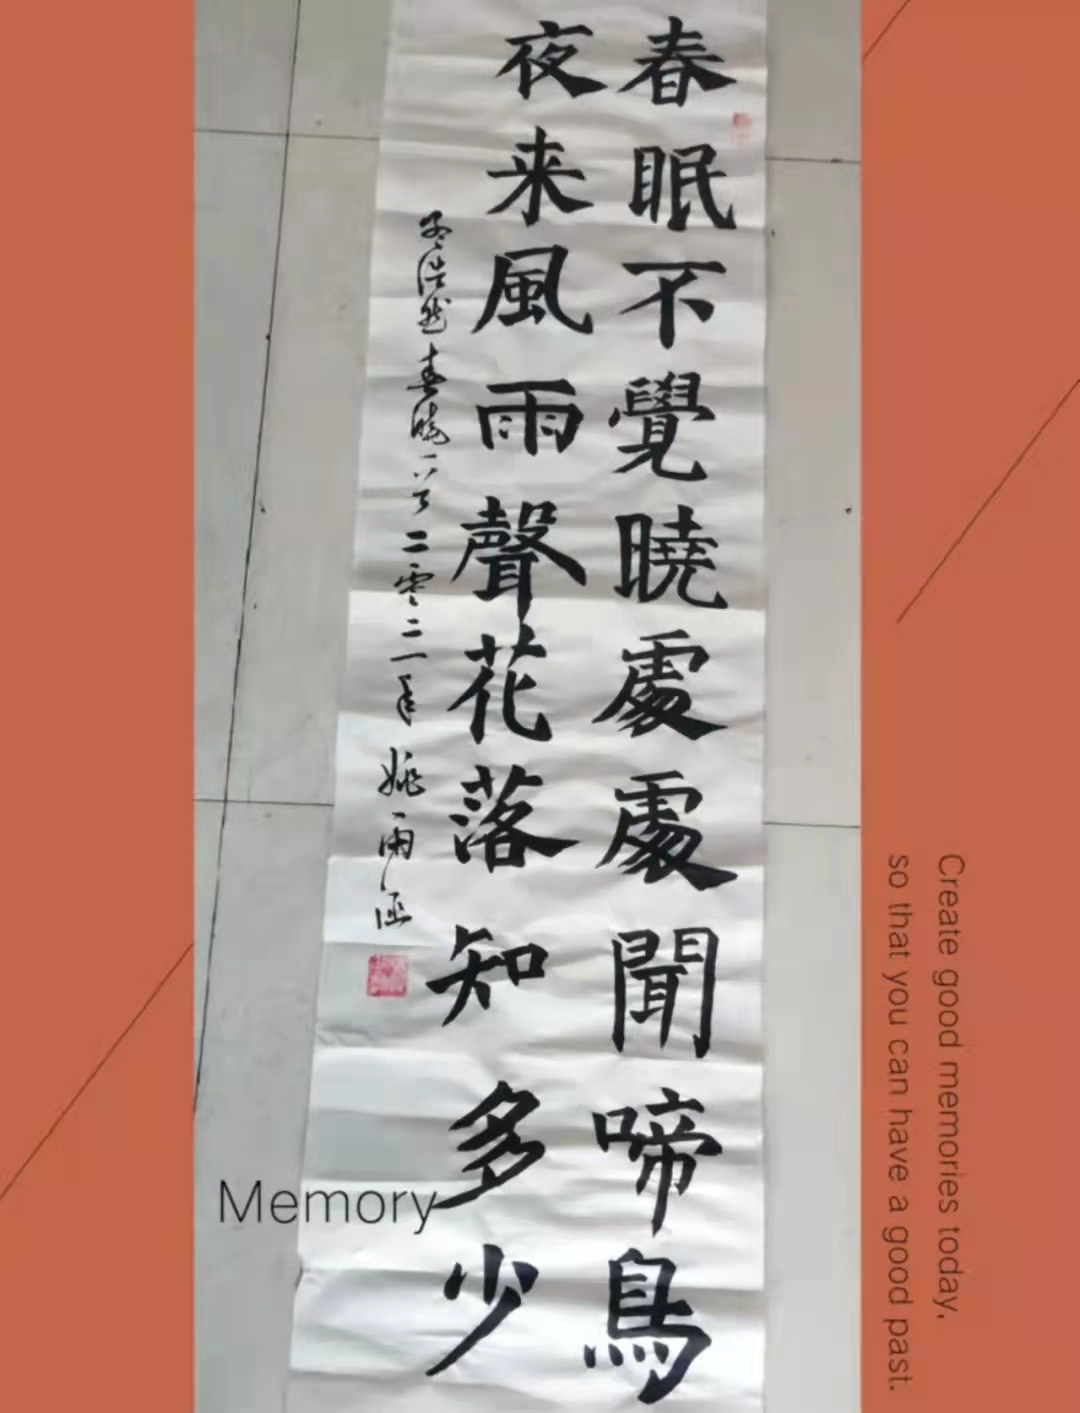 春眠不覺曉處處聞啼鳥
夜来風雨聲花落知多少
孟浩然春曉一首二零二一年姚雨函
Memory
Create good memories today,
so that you can have a good past.